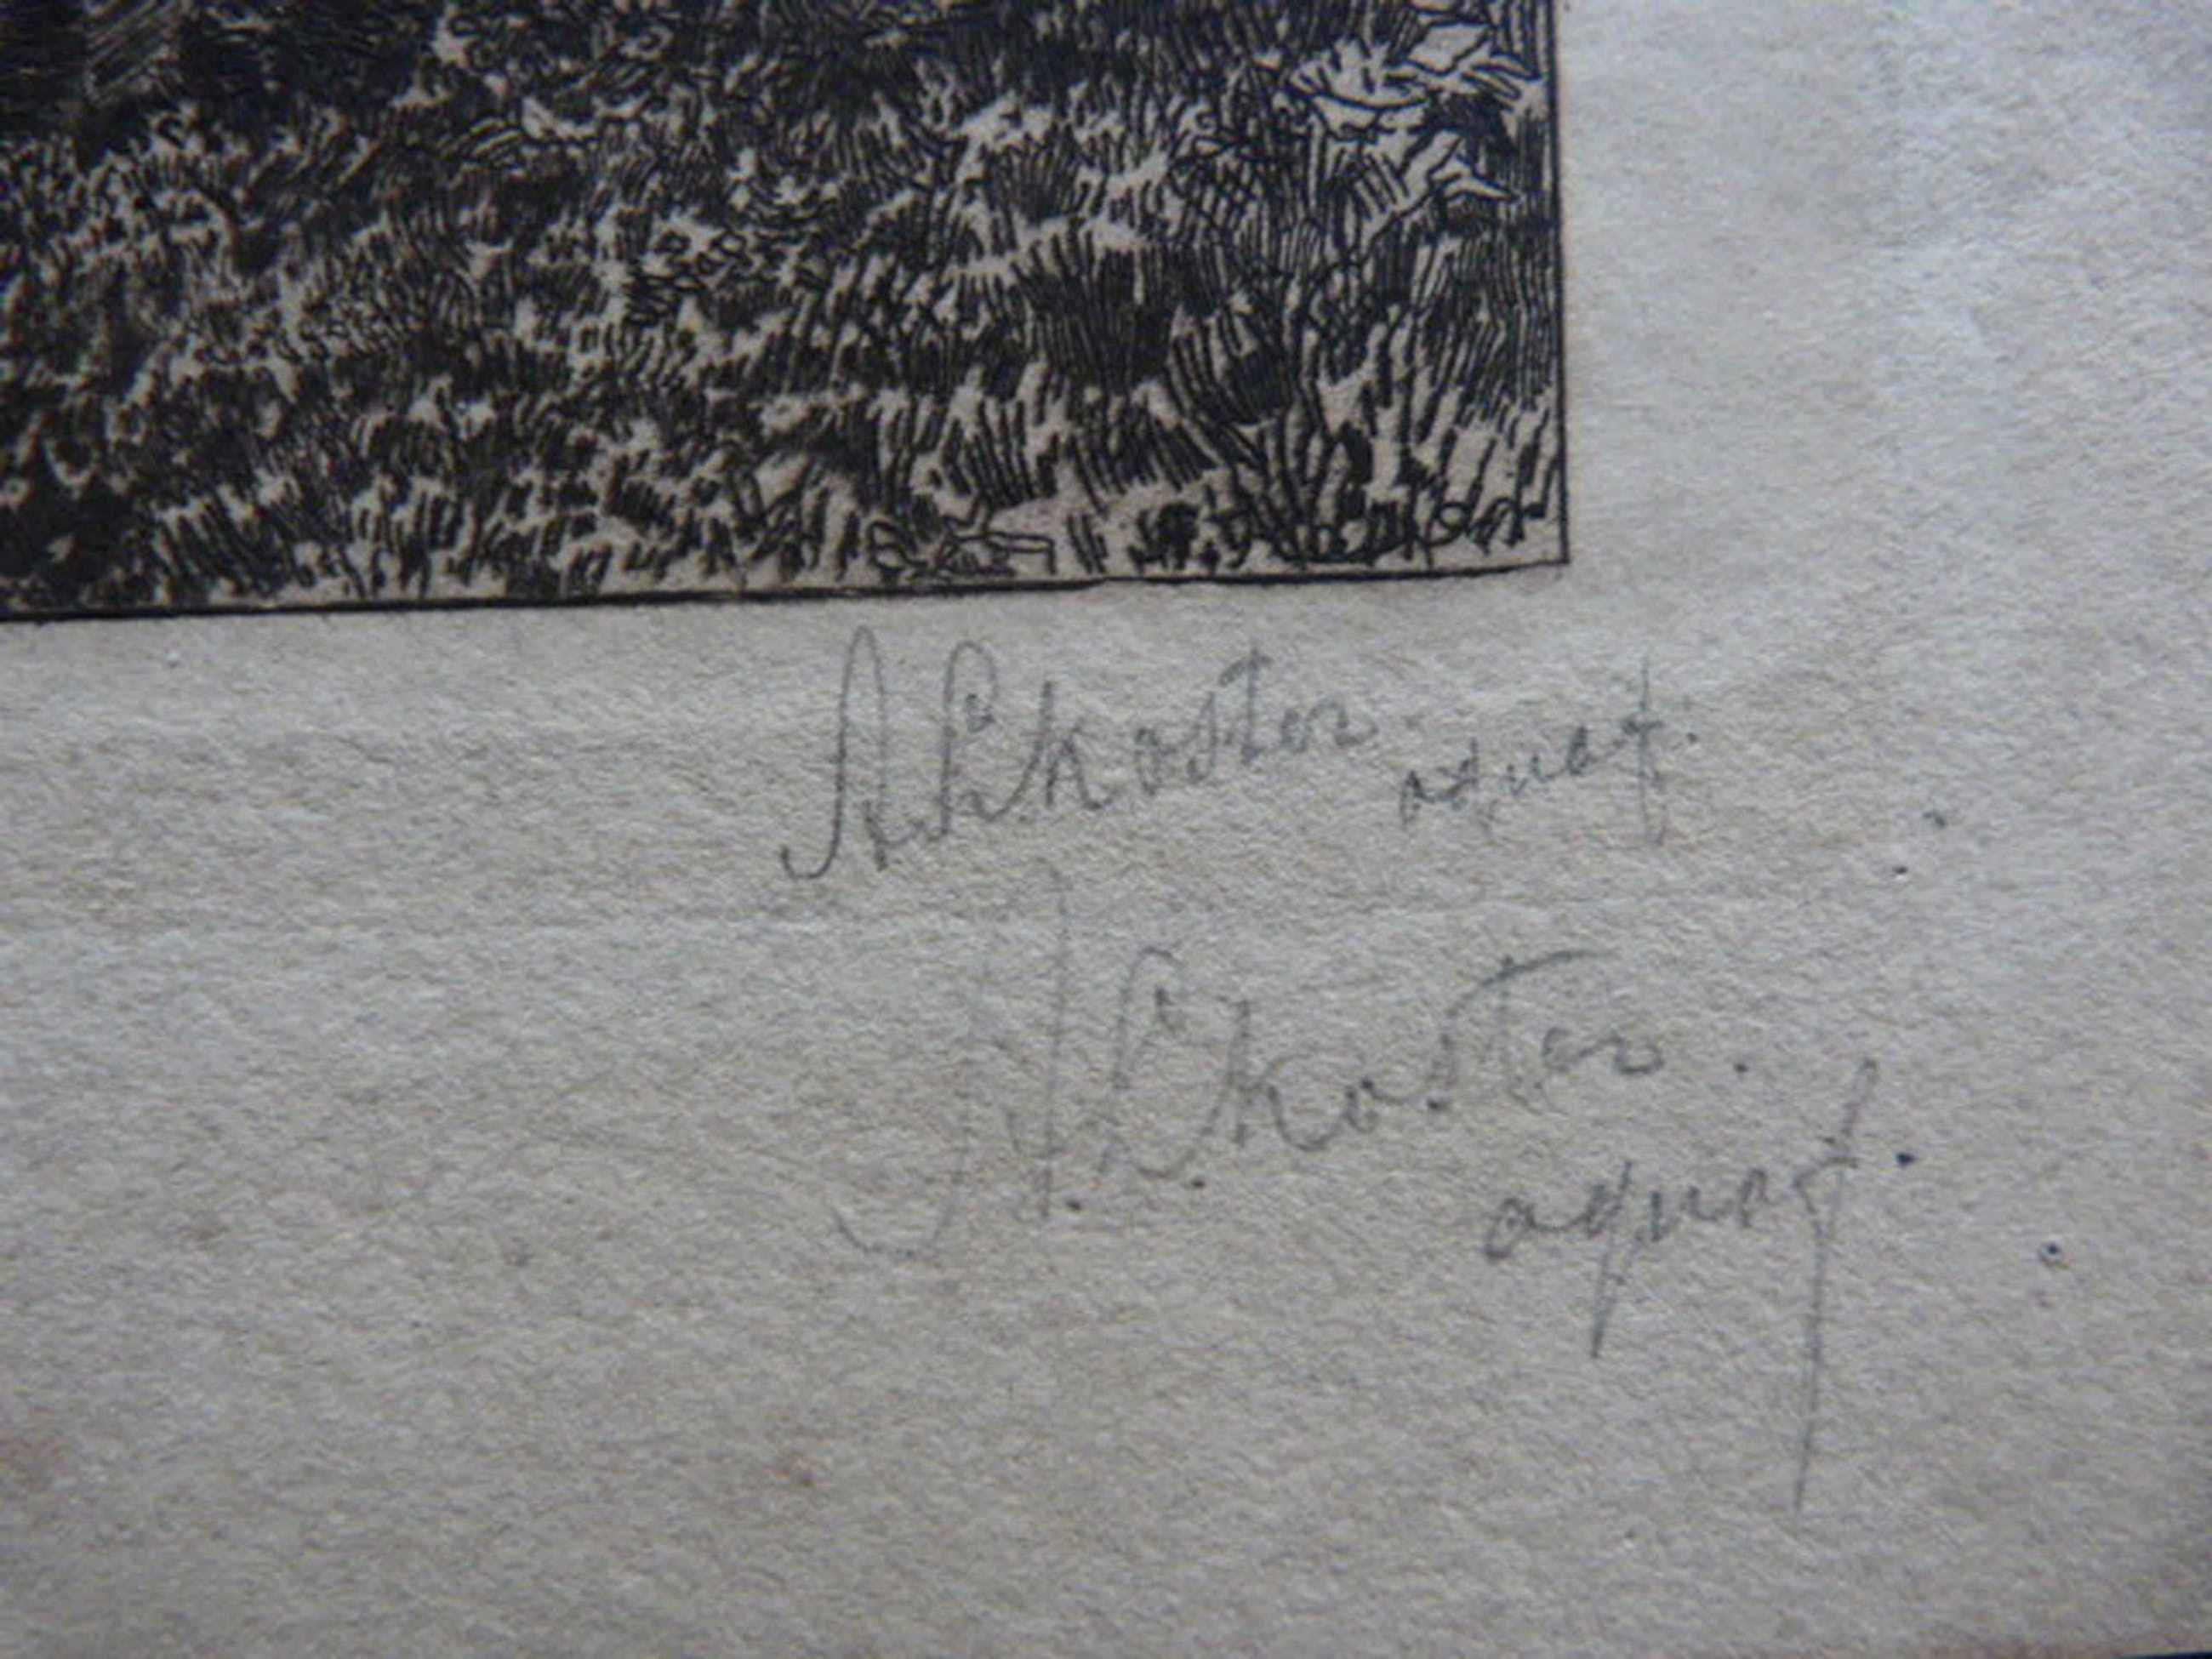 A.L. Koster. aquaf.
A.L. Koster. aquaf.